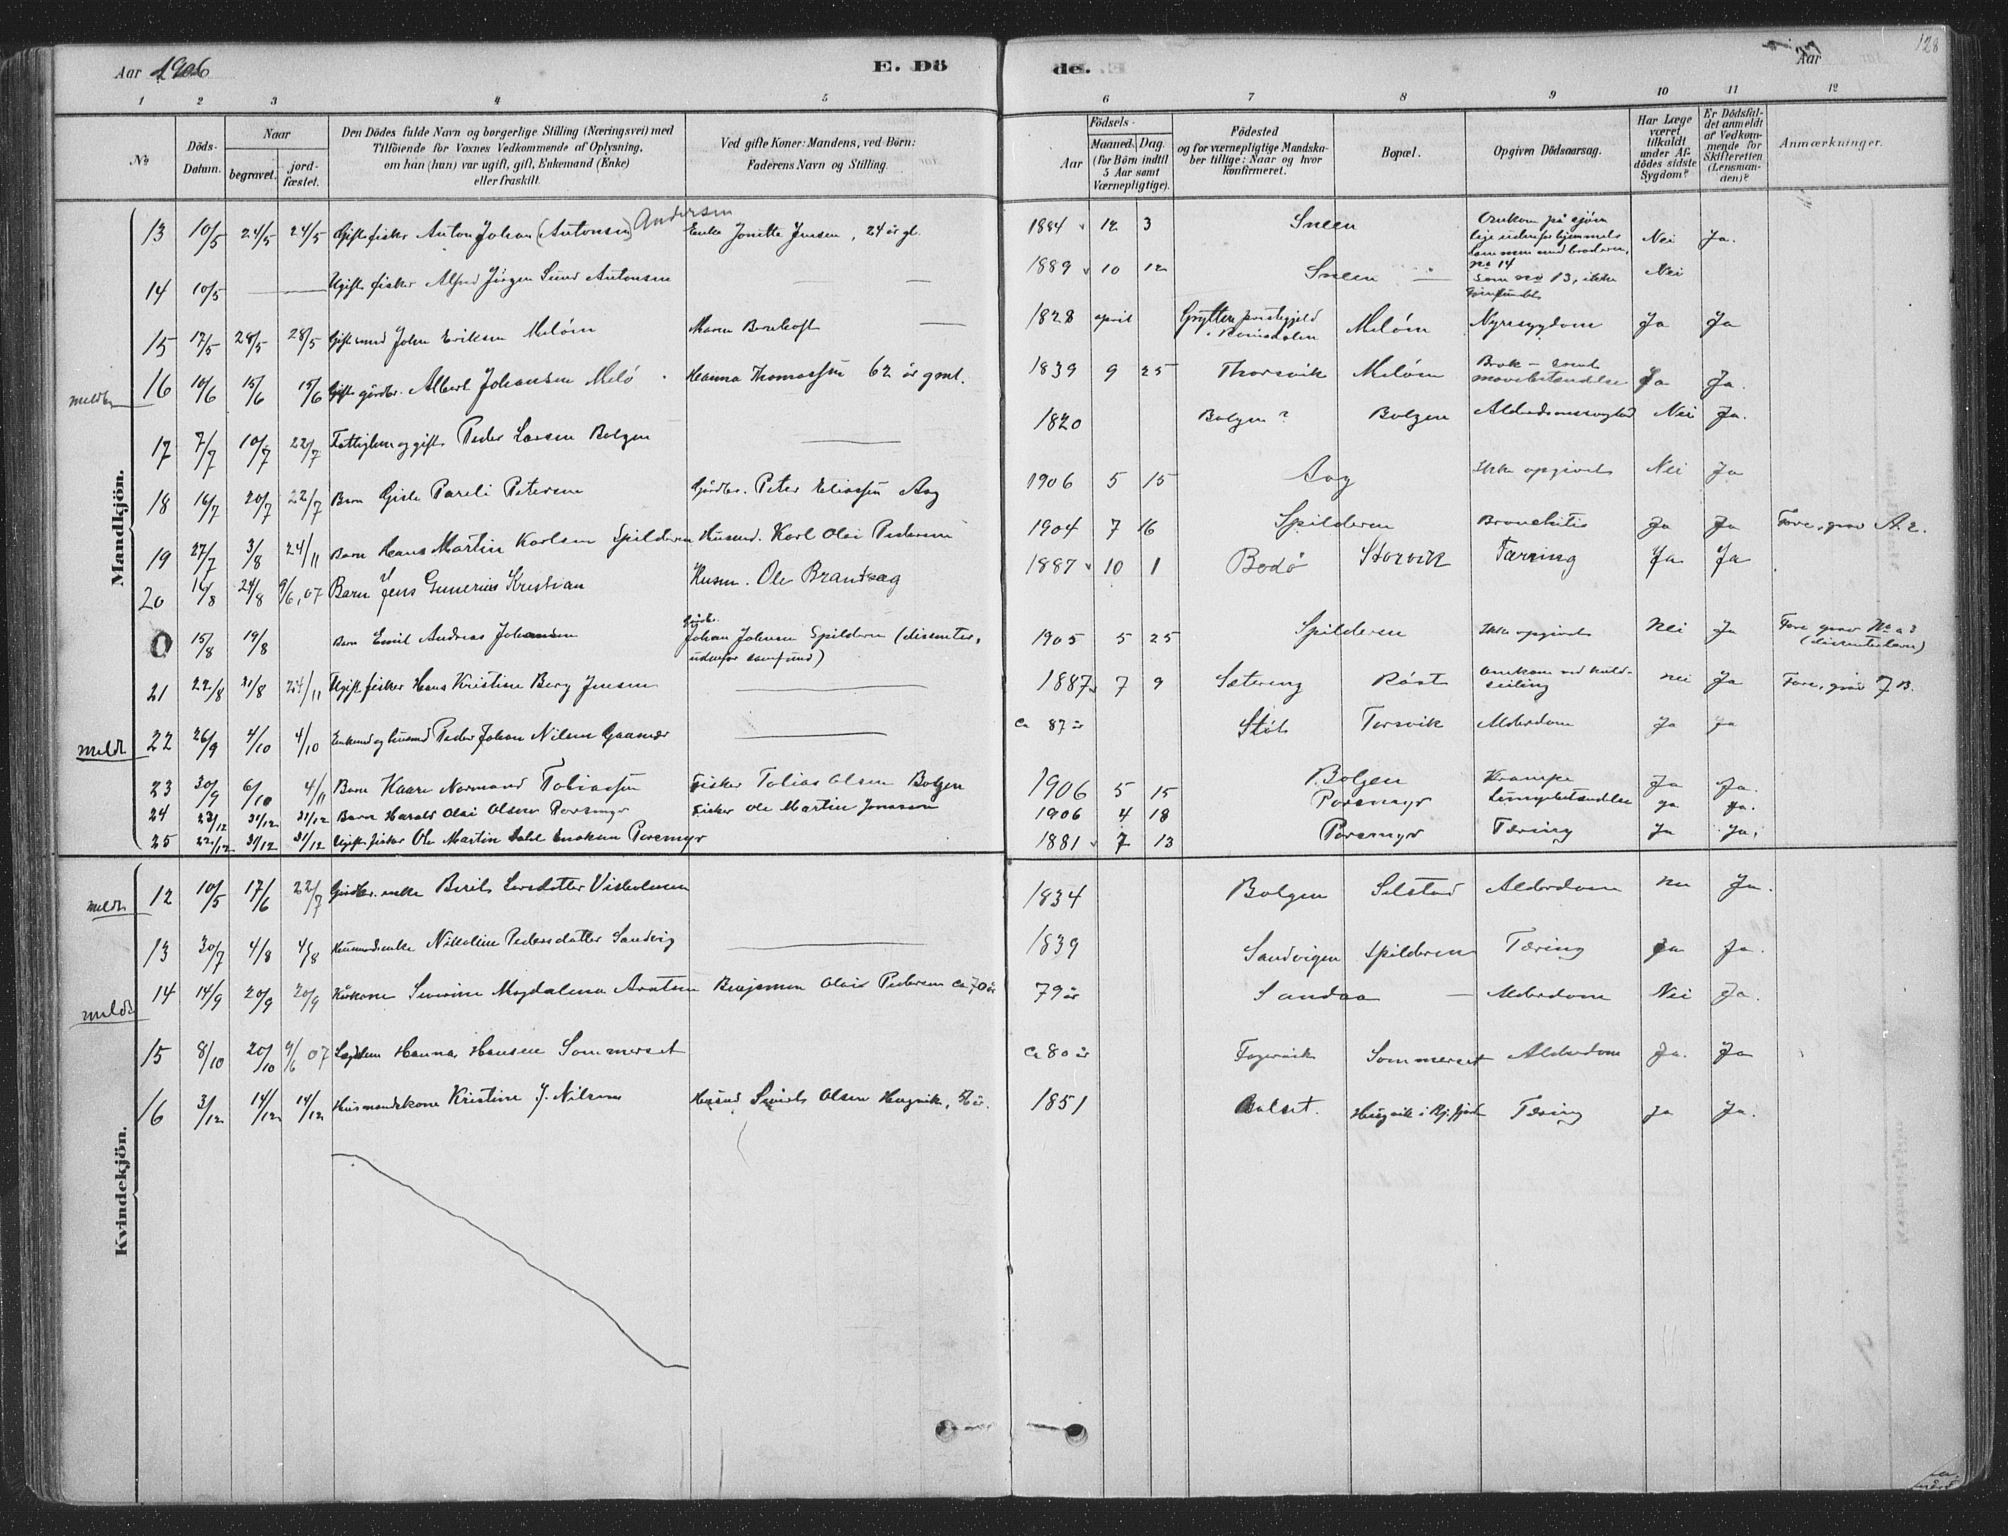 Aar 1906
E. Dö
de.
Aar
128
1 2 3 4 5 6 7 8 9 10 11 12
No
Döds-Datum.
Naar
begravet.
jord-fæstet.
Den Dödes fulde Navn og borgerlige Stilling (Næringsvei) med
Tilföiende for Voxnes Vedkommende af Oplysning,
om han (hun) var ugift, gift, Enkemand (Enke)
eller fraskilt.
Ved gifte Koner: Mandens, ved Börn:
Faderens Navn og Stilling.
Födsels-
Aar
Maaned. Dag.
(for Börn indtil
5 Aar samt
Værnepligtige).
Födested
og for værnepligtige Mandska-
ber tillige: Naar og hvor
konfirmeret.
Bopæl.
Opgiven Dödsaarsag.
Har Læge
været
tilkaldt
under Af-
dödes sidste
Sygdom?
Er Dödsfal-
det anmeldt
af Vedkom-
mende for
Skifteretten
(Lensman-
den)?
Anmærkninger.
Mandkjön.
13 10/5 24/5 24/5 Gift fisker Anton Johan (Antonsen) Andersen Enke Jonette Jensen, 24 år gl. 1884 12 3 Sneen Omkom på sjøen lige udenfor hjemmet sammen med broderen, no 14 Nei Ja.
14 10/5 — — Ugift fisker Alfred Jörgen Sund Antonsen — — 1889 10 12 Sneen — Som no 13, ikke gjenfundet Nei
15 17/5 28/5 28/5 Gift mand John Eriksen Meløen Maren — 1828 april Grytten præstegjeld i Romsdalen Meløen Nyresygdom Ja Ja
meldt 16 10/6 15/6 15/6 Gift gårdbr. Albert Johansen Melø Hanna Thomassen 62 år gml. 1839 9 25 Thorsvik Meløen Brok - samt mavebetændelse Ja Ja.
17 7/7 10/7 22/7 Fattiglem og gift Peder Larsen Bolgen — 1820 Bolgen? Bolgen Alderdomssvaghed Nei Ja.
18 16/7 20/7 22/7 Barn Gisle Pareli Petersen Gårdbr. Peter Eliassen Aag 1906 5 15 Aag Ikke opgivet Nei Ja
19 27/7 3/8 24/11 Barn Hans Martin Karlsen Spilderen Husmd. Karl Olai Pedersen 1904 7 16 Spilderen Bronchitis Ja Ja Fore, grav A. 2.
20 16/8 24/8 9/6, 07 Barn Jens Gunerius Kristian Husm. Ole Brantsæg 1887 10 1 Bodø Storvik Tæring Ja Ja
0 15/8 19/8 Barn Emil Andreas Johansen Gårdbr. Johan Johnsen Spilderen (dissenter, udenfor samfund) 1905 5 25 Spilderen Ikke opgivet Nei Ja Fore grav No a 3 (dissenterbarn)
21 22/8 31/8 24/11 Ugift fisker Hans Kristine Berg Jensen — 1887 7 9 Sætering Røst Omkom ved kuldseiling Nei Ja Fore, grav 7 B.
meldt 22 26/9 4/10 4/10 Enkemd og husmd Peder Johan Nilsen Gaasvær — Ca 87 år Støt Torsvik Alderdom Ja Ja
23 30/9 6/10 4/11 Barn Kaare Normand Tobiassen Fisker Tobias Olsen Bolgen 1906 5 15 Bolgen Krampe Ja Ja.
24 23/12 31/12 31/12 Barn Harald Olai Olsen Poremyr Fisker Ole Martin Jonassen 1906 4 18 Poremyr Lungebetændelse Ja Ja.
25 22/12 31/12 31/12 Ugift fisker Ole Martin Dahl Enoksen Poremyr 1881 7 13 Poremyr Tæring Ja Ja.
Kvindekjön.
meldt 12 10/5 17/6 22/7 Gårdbr. enke Berit Larsdatter Visholmen 1834 Bolgen Selstad Alderdom Nei Ja.
13 30/7 4/8 4/8 Husmandsenke Nikoline Pedersdatter Sandvig — 1839 Sandvigen Spilderen Tæring Ja Ja.
meldt 14 14/9 20/9 20/9 Kårkone Severine Magdalena Arntsen Benjamin Olai Pedersen ca 70 år 79 år Sandaa — Alderdom Nei Ja.
15 8/10 20/10 9/6 07 Lægdlem Hanna Hansen Sommerset Ca 80 år Fagervik Sommerset Alderdom Ja. Ja
16 3/12 14/12 14/12 Husmandskone Kristine J. Nilsen Husmd Sivert Olsen Haugvik, 1851 Balset. Haugvik i Tæring Ja Ja.